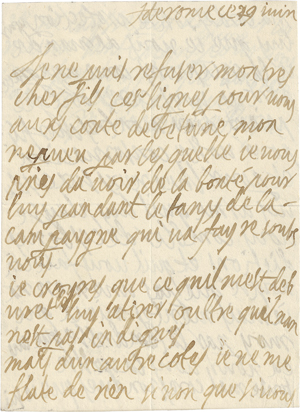 de rome ce 29 iuin
Je ne puis refuser mon tres
cher fils ces lignes pour vous
au conte de betune mon
neveu par les quelle ie vous
pries da voir de la bonté pour
luy pandant le tams de la
campaygne qui va fayre soubs
vous
ie croyres que ce quil mest de
luy atirer oultre quil nan
nest pas indignes
mais dun autre cotes ie ne me
flate de rien si non que si vous